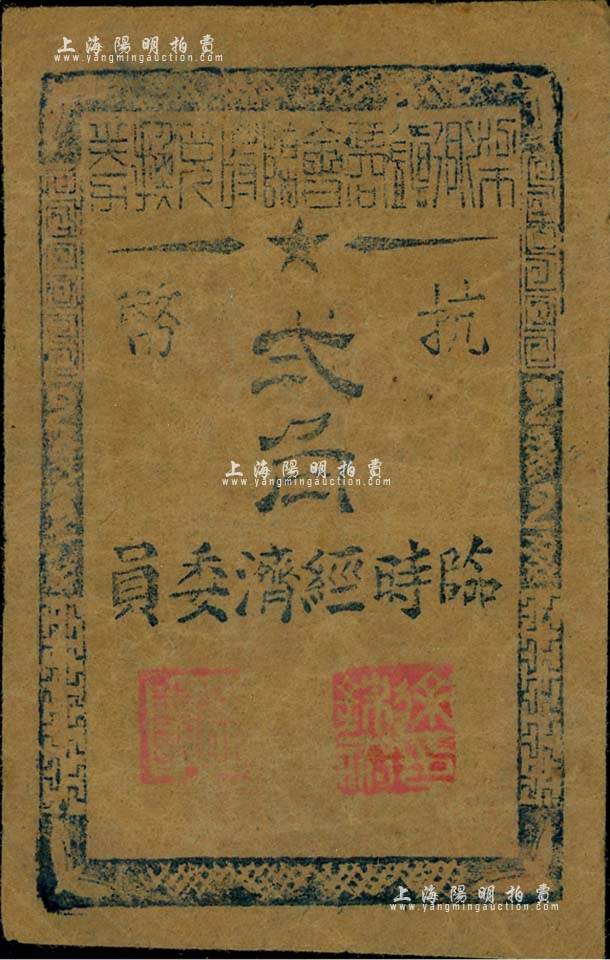 上海陽明拍賣
www.yangmingauction.com
鎮商會臨時兌換券
抗幣
弍
上海陽明拍賣
www.yangmingauction.com
臨時經濟委員
上海陽明拍賣
www.yangmingauction.com